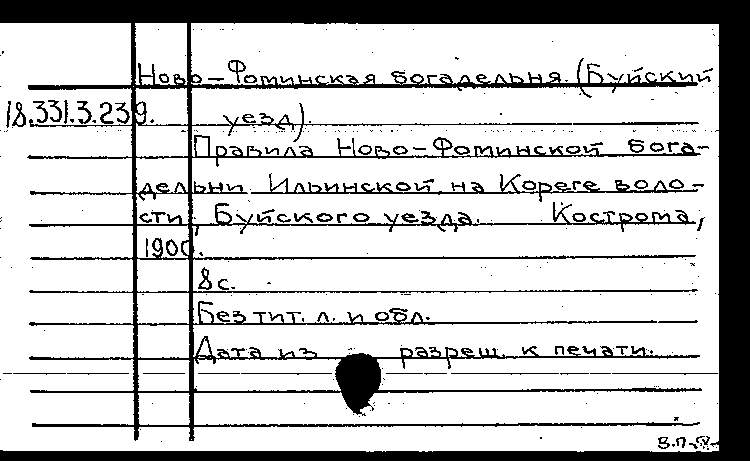 Ново-Фоминская богадельня. (Буйский
18.331.3.239.
уезд).
Правила Ново-Фоминской бога-
дельни Ильинской на Кореге воло-
сти, Буйского уезда. Кострома,
1900.
8 с.
Без тит. л. и обл.
Дата из разреш. к печати.